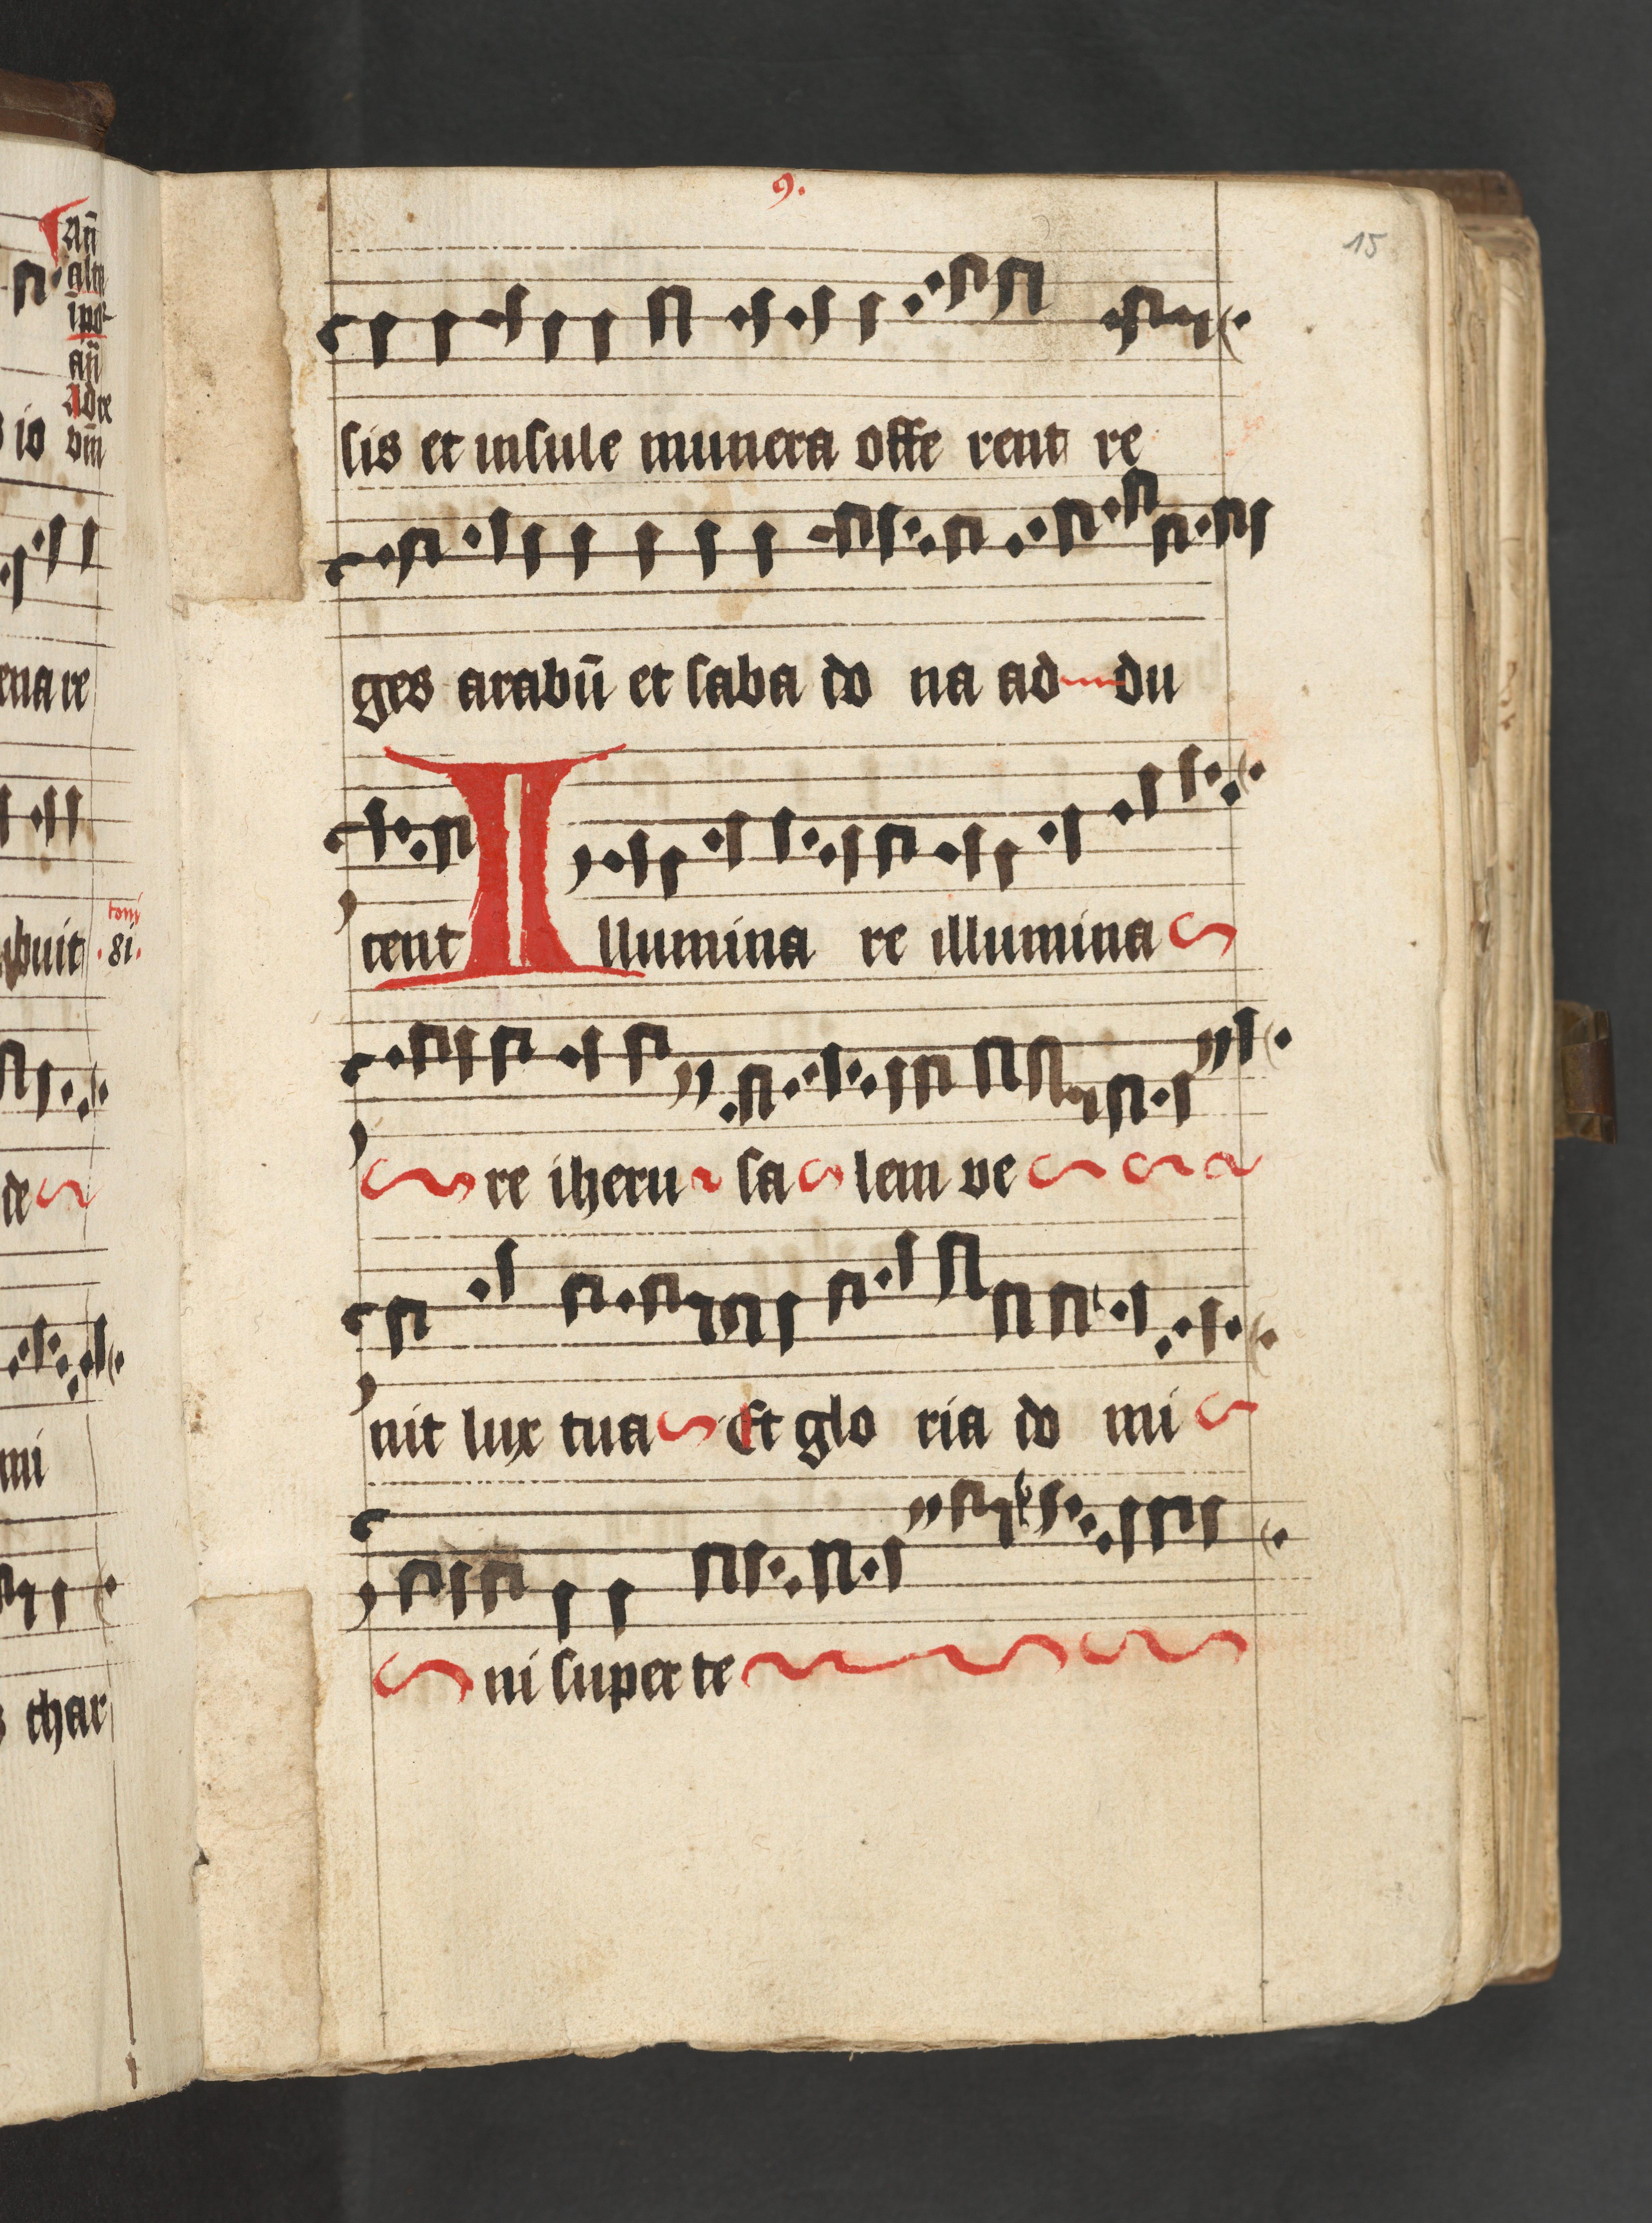 9.
15
sis et insule munera offe rent re
ges arabū et saba do na ad du
cent Illumina re illumina
re iheru sa lem ve
nit lux tua Et glo ria do mi
ni super te
Añ
añ
Adre
io
ena re
tom
buit .8i.
te
mi
s thar